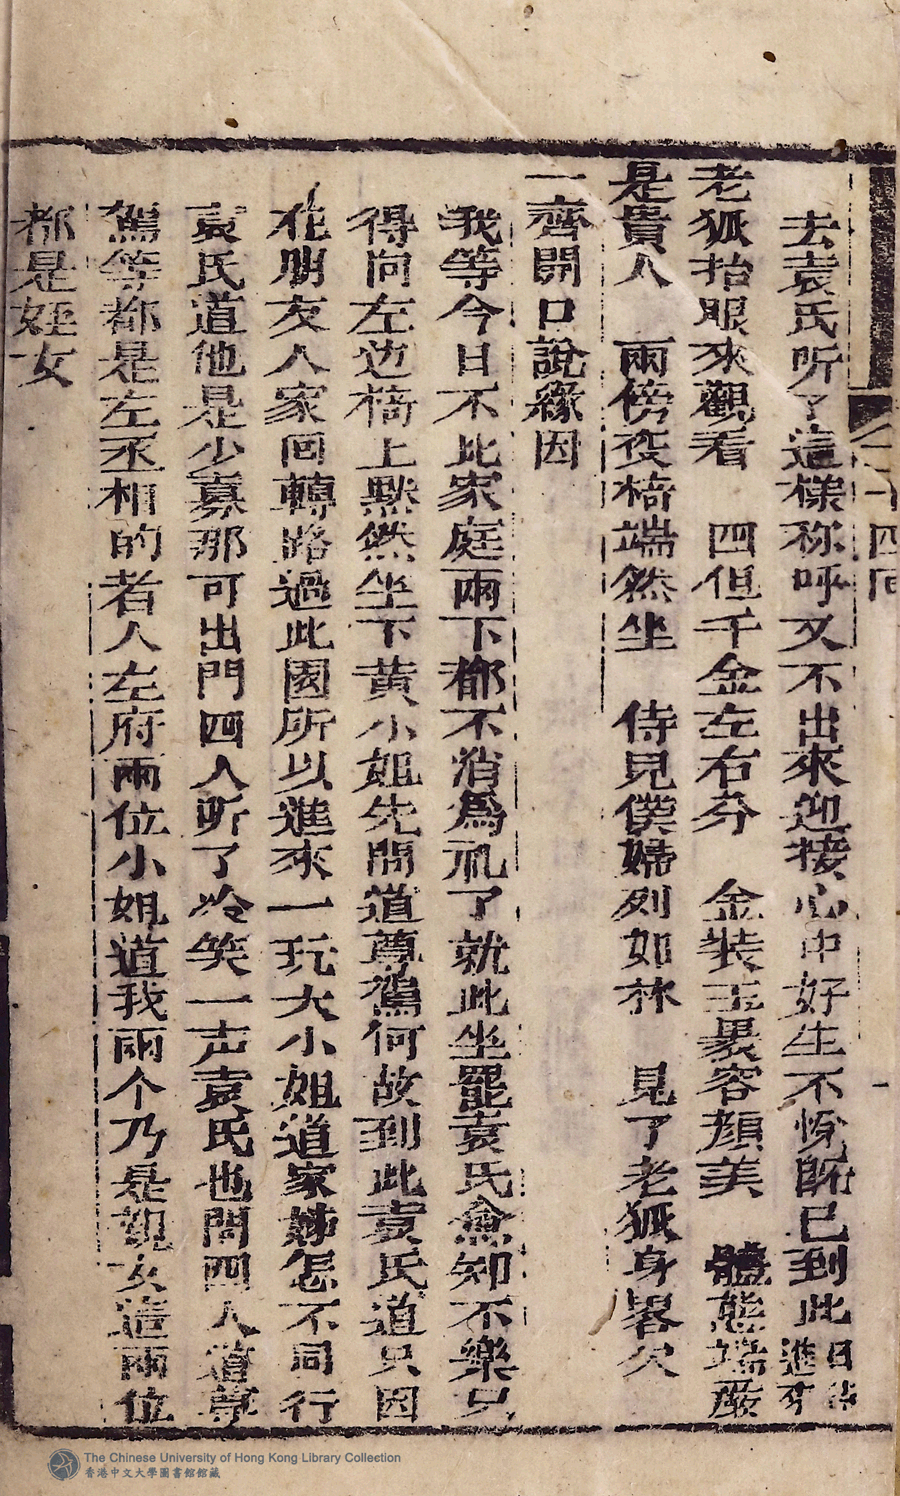 二十四回
去袁氏听了這樣称呼又不出來迎接心中好生不悅既已到此且待進來
老狐抬眼來觀看　四但千金左右分　金裝玉裹容顔美　體態端嚴
是貴人　兩傍交椅端然坐　侍兒僕婦列如林　見了老狐身畧欠
一齊開口說緣因
我等今日不比家庭兩下都不消爲礼了就此坐罷袁氏僉知不樂只
得向左边椅上默然坐下黄小姐先問道尊駕何故到此袁氏道只因
在朋友人家回轉路過此園所以進來一玩大小姐道家姊怎不同行
袁氏道他是少寡那可出門四人听了冷笑一声袁氏也問四人道尊
駕等都是左丞相的者人左府兩位小姐道我兩个乃是親女這兩位
都是姪女
The Chinese University of Hong Kong Library Collection
香港中文大學圖書館館藏